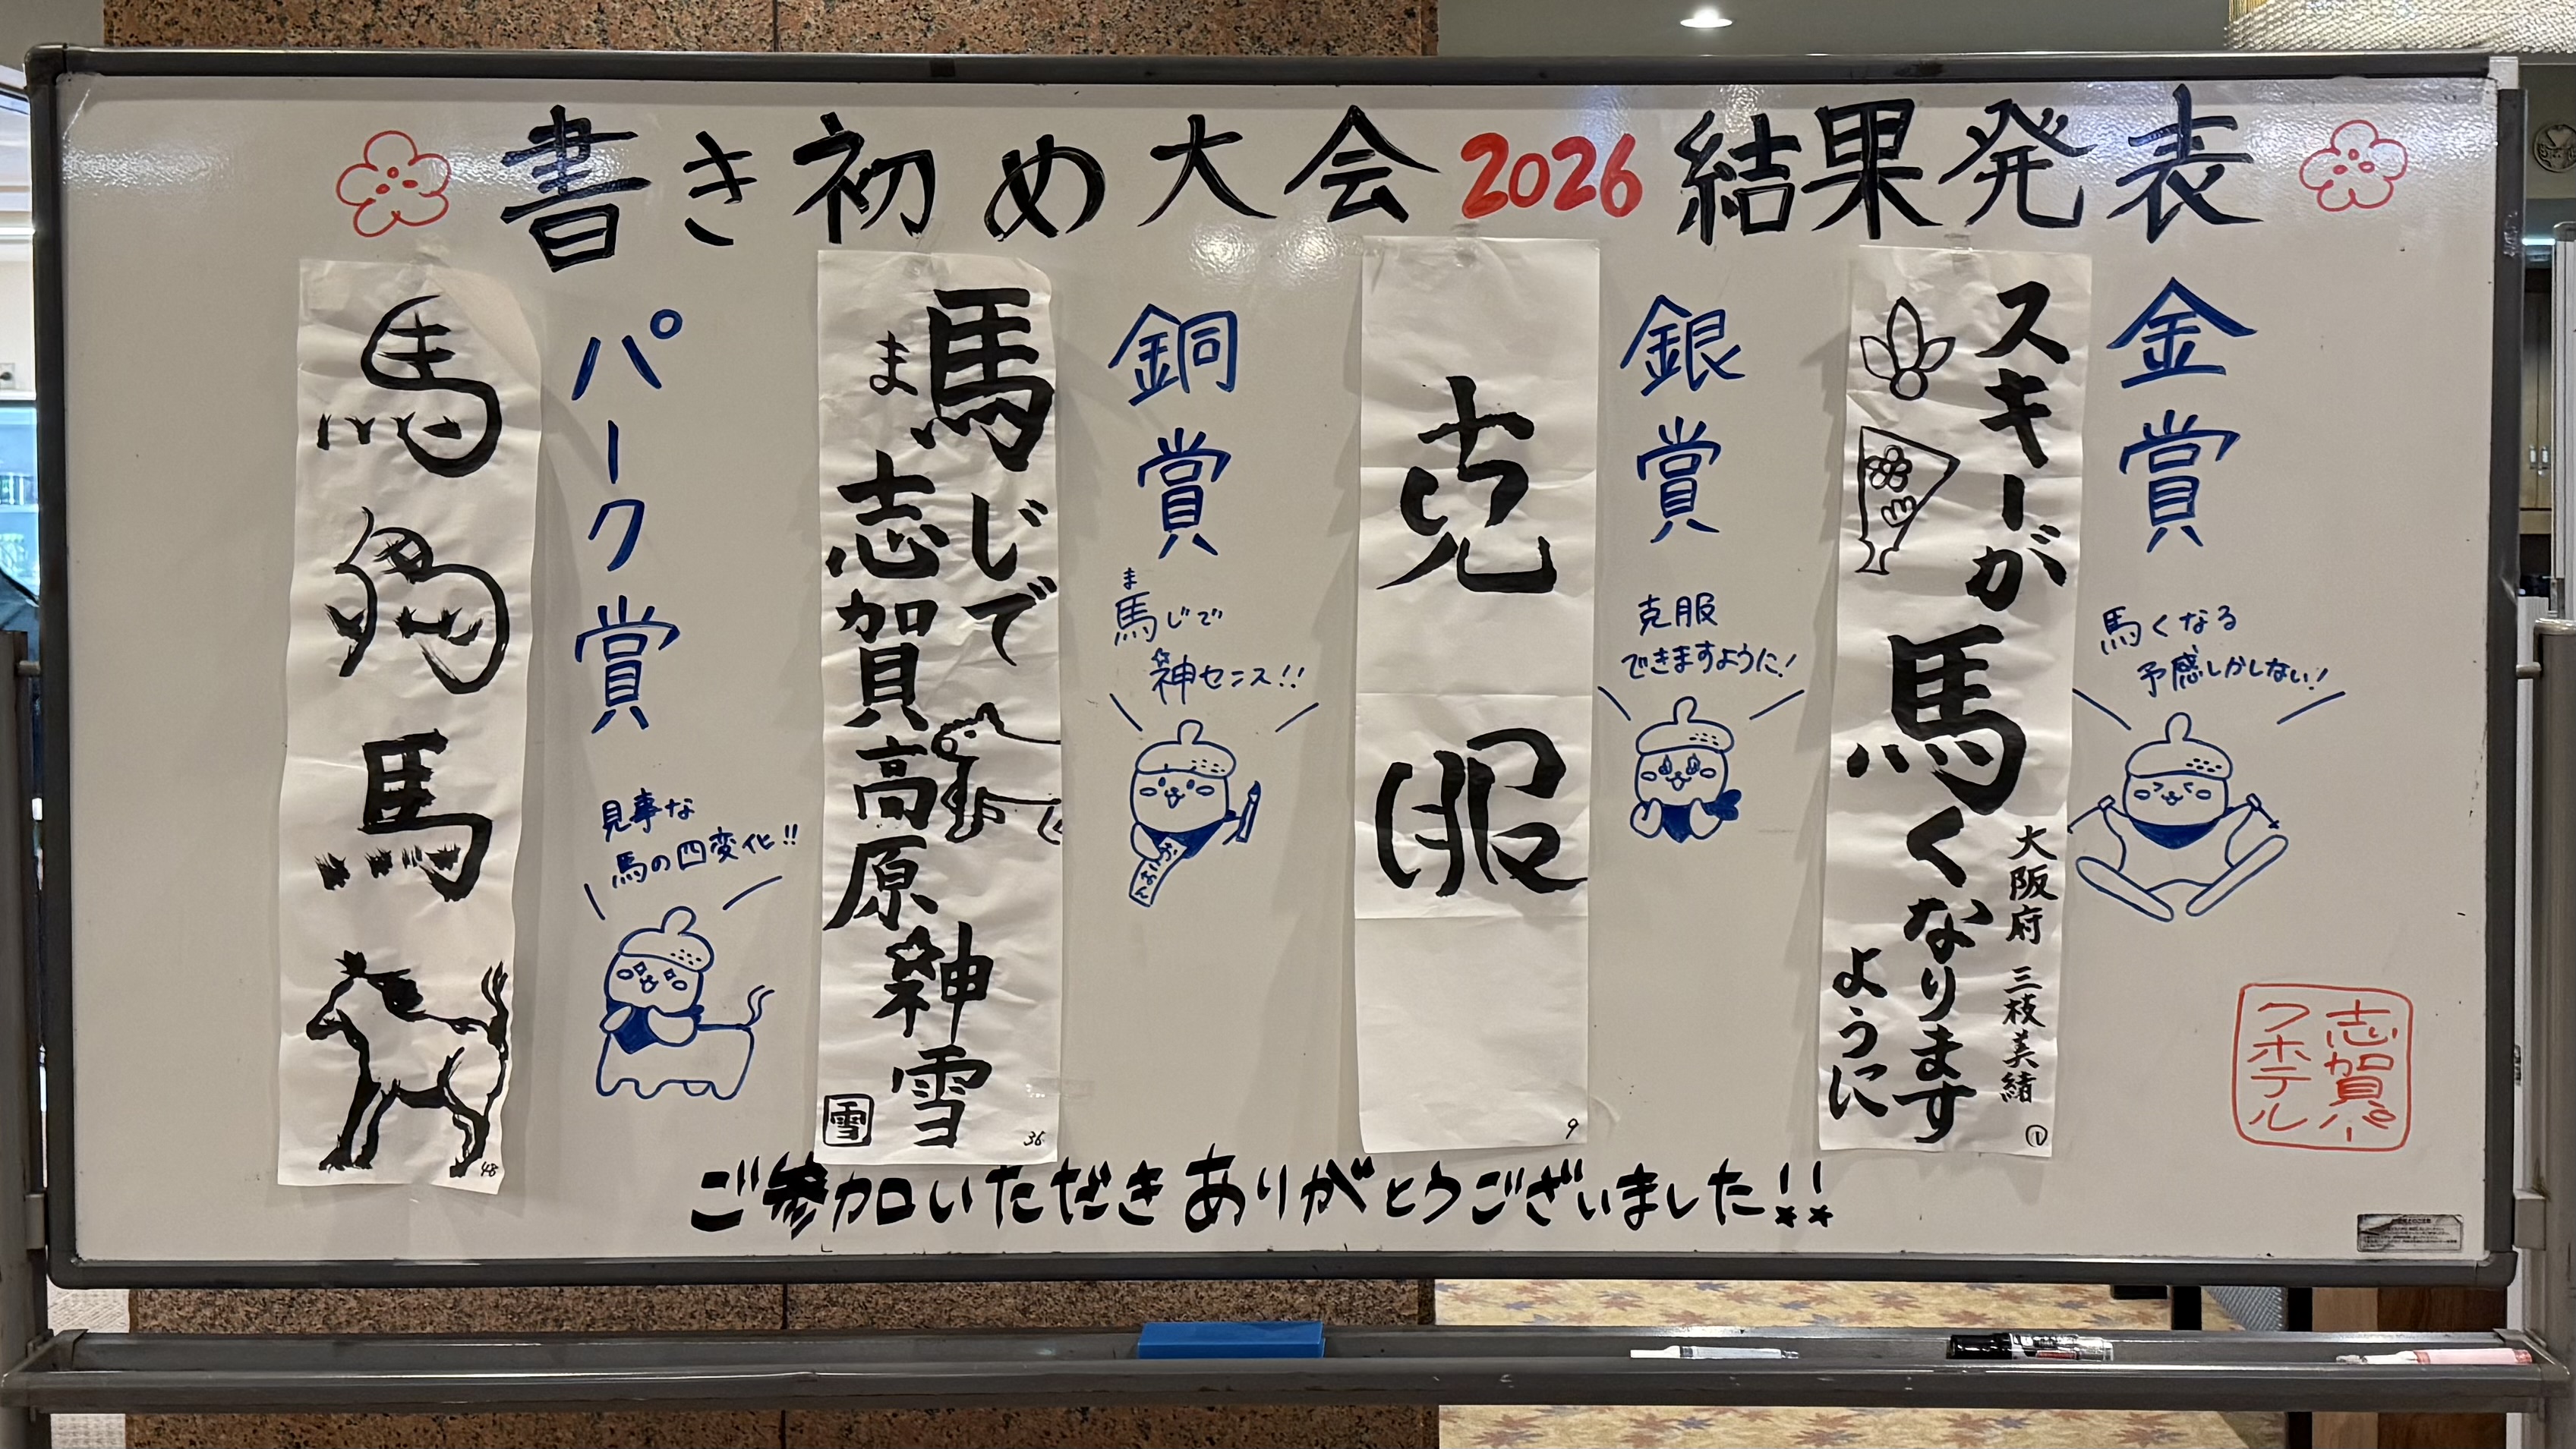 書き初め大会2026結果発表
金賞
スキーが
馬くなります
ように
大阪府 三枝美緒
①
馬くなる
予感しかしない!
銀賞
克服
9
克服
できますように!
銅賞
馬じで
ま
志賀高原
神雪
雪
36
ま
馬じで
神センス!!
パーク賞
馬
馬
48
見事な
馬の四変化!!
志賀パー
クホテル
ご参加いただきありがとうございました!!